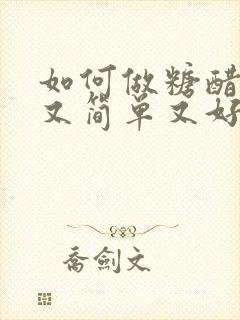 如何做糖醋
又简单又好
乔剑文